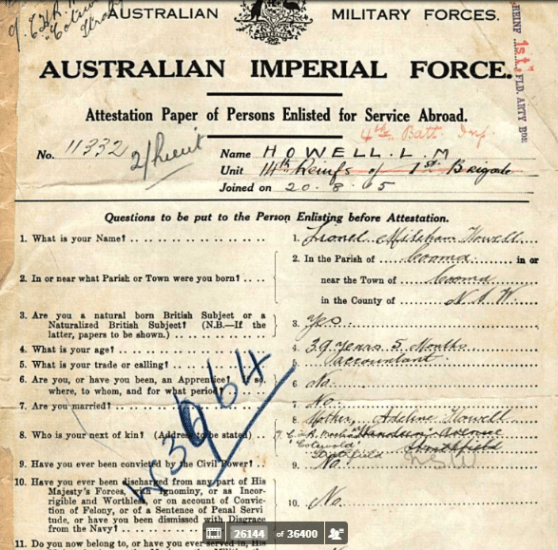 AUSTRALIAN MILITARY FORCES.
AUSTRALIAN IMPERIAL FORCE.
Attestation Paper of Persons Enlisted for Service Abroad.
4th Batt. Inf
No. 11332 Name HOWELL. L M
2/Lieut Unit 11th Reinfs of 1st Brigade
Joined on 20. 8. 15
Questions to be put to the Person Enlisting before Attestation.
1. What is your Name? 1. Lionel Howell
2. In or near what Parish or Town were you born? 2. In the Parish of Cooma in or
near the Town of Cooma
in the County of N.S.W.
3. Are you a natural born British Subject or a
Naturalized British Subject? (N.B.—If the
latter, papers to be shown.) 3. Yes
4. What is your age? 4. 39 Years 5 Months
5. What is your trade or calling? 5. Accountant
6. Are you, or have you been, an Apprentice? so,
where, to whom, and for what period? 6. No.
7. Are you married? 7. No.
8. Who is your next of kin? (Address to be stated) 8. Mother, Adeline Howell
9. Have you ever been convicted by the Civil Power? 9. No.
10. Have you ever been discharged from any part of His
Majesty's Forces, with Ignominy, or as Incor-
rigible and Worthless, or on account of Convic-
tion of Felony, or of a Sentence of Penal Servi
tude, or have you been dismissed with Disgrace
from the Navy? 10. No.
11. Do you now belong to, or have you ever served in, His
26144 of 36400